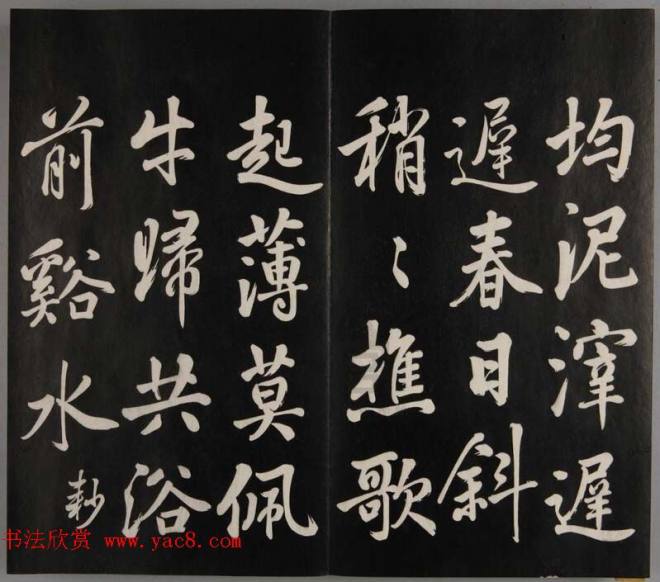 均泥滓遲
遲春日斜
稍〻樵歌
起薄莫佩
牛歸共浴
前谿水
耖
书法欣赏 www.yac8.com